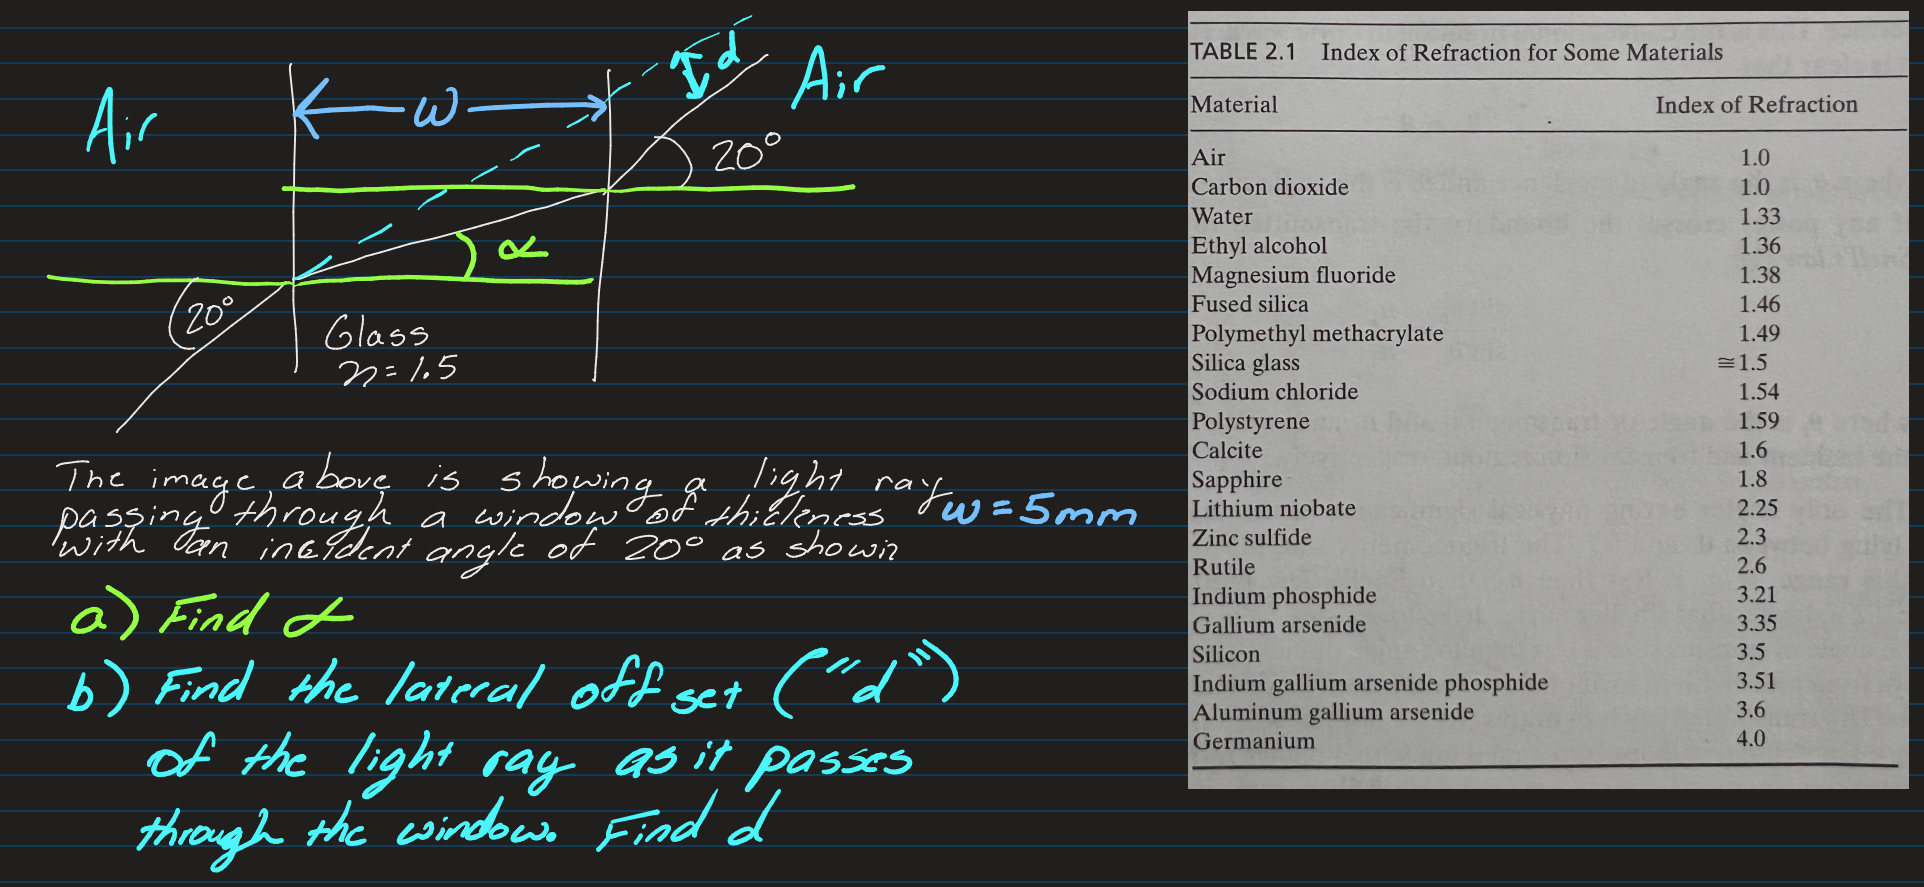 Air
w
d
Air
20°
α
20°
Glass
n = 1.5
The image above is showing a light ray
passing through a window of thickness w = 5mm
with an incident angle of 20° as shown
a) Find α
b) Find the lateral offset ("d")
of the light ray as it passes
through the window. Find d
TABLE 2.1 Index of Refraction for Some Materials
Material Index of Refraction
Air 1.0
Carbon dioxide 1.0
Water 1.33
Ethyl alcohol 1.36
Magnesium fluoride 1.38
Fused silica 1.46
Polymethyl methacrylate 1.49
Silica glass ≅1.5
Sodium chloride 1.54
Polystyrene 1.59
Calcite 1.6
Sapphire 1.8
Lithium niobate 2.25
Zinc sulfide 2.3
Rutile 2.6
Indium phosphide 3.21
Gallium arsenide 3.35
Silicon 3.5
Indium gallium arsenide phosphide 3.51
Aluminum gallium arsenide 3.6
Germanium 4.0